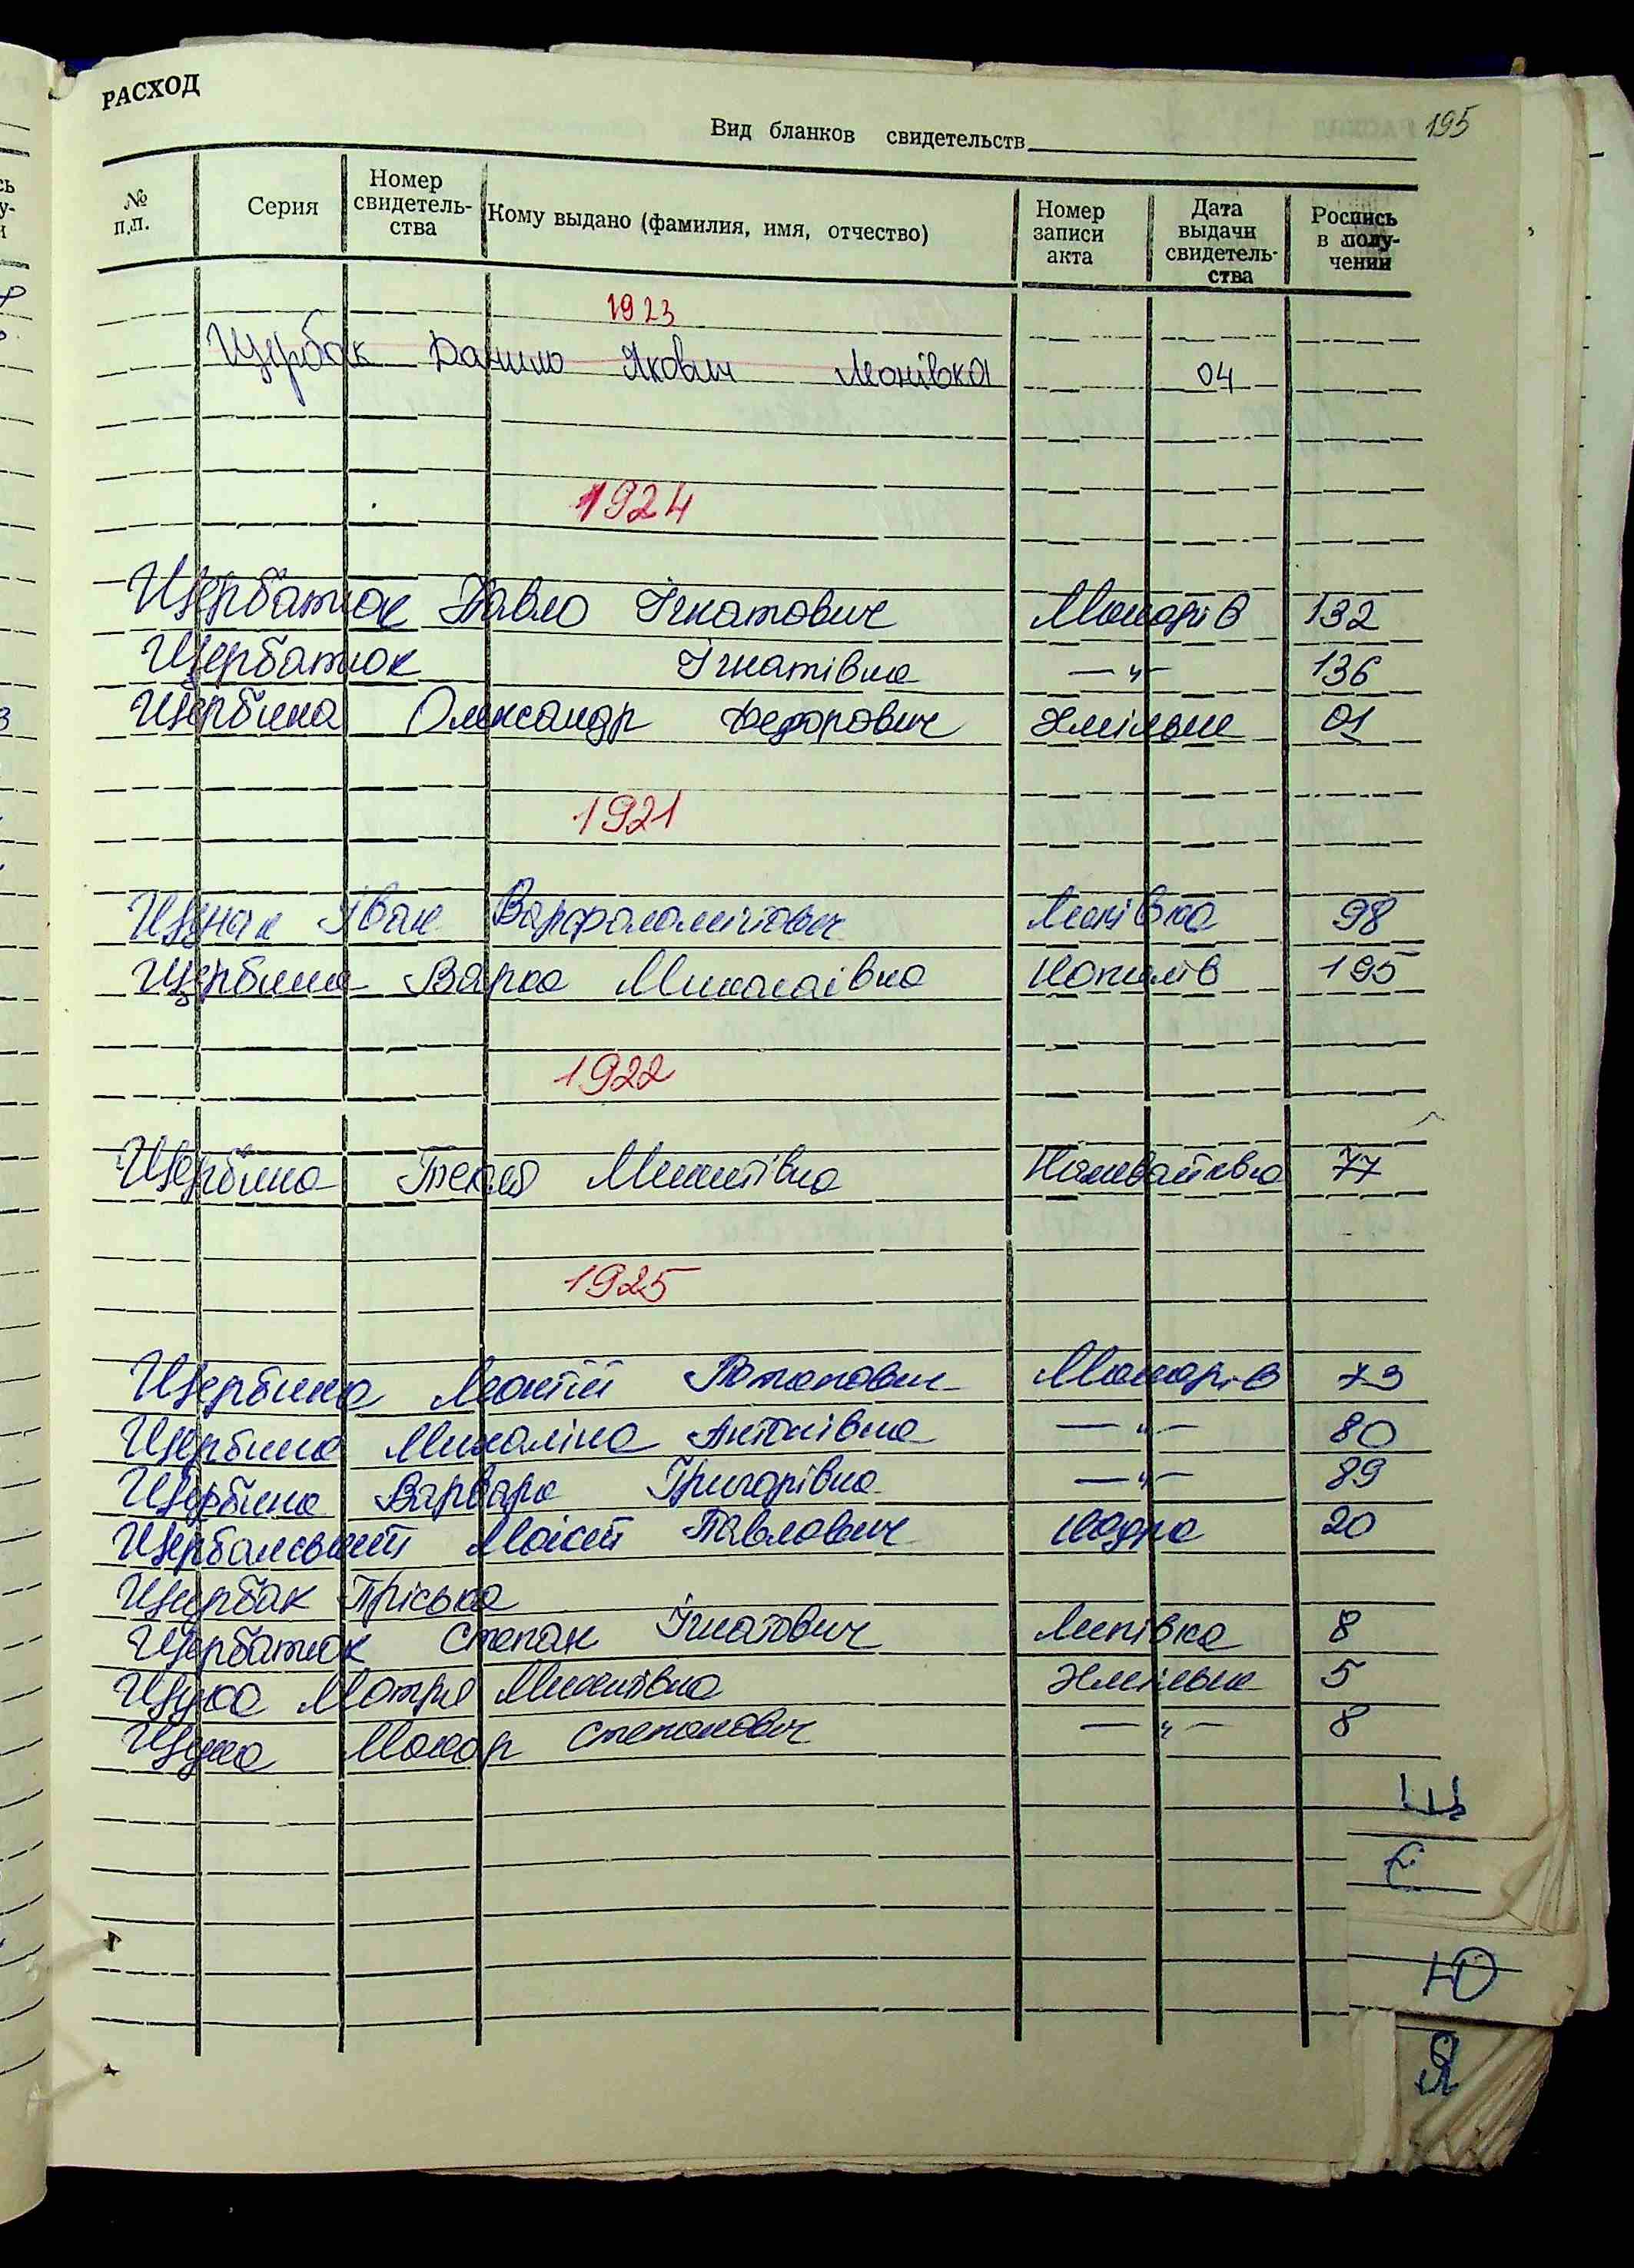 195
РАСХОД
Вид бланков свидетельств
№ п.п. Серия Номер свидетель-ства Кому выдано (фамилия, имя, отчество) Номер записи акта Дата выдачи свидетель-ства Роспись в полу-чении
1923
Щербак Данило Якович Леонівка 04
1924
Щербатюк Павло Ігнатович Макарів 132
Щербатюк Ігнатівна —"— 136
Щербина Олександр Федорович 01
1921
Іван Варфоломійович 98
Щербина Варка Миколаївна Копилів 195
1922
Щербина Текля Микитівна Наливайківка 77
1925
Щербина Леонтій Потапович Макарів 79
Щербина Михаліна Антонівна —"— 80
Щербина Варвара Григорівна —"— 89
Мойсей Павлович 20
Щербак Пріська
Щербатюк Степан Ігнатович Липівка 8
Щука Мотря Микитівна 5
Щука Макар Степанович —"— 8
Щ
Є
Ю
Я